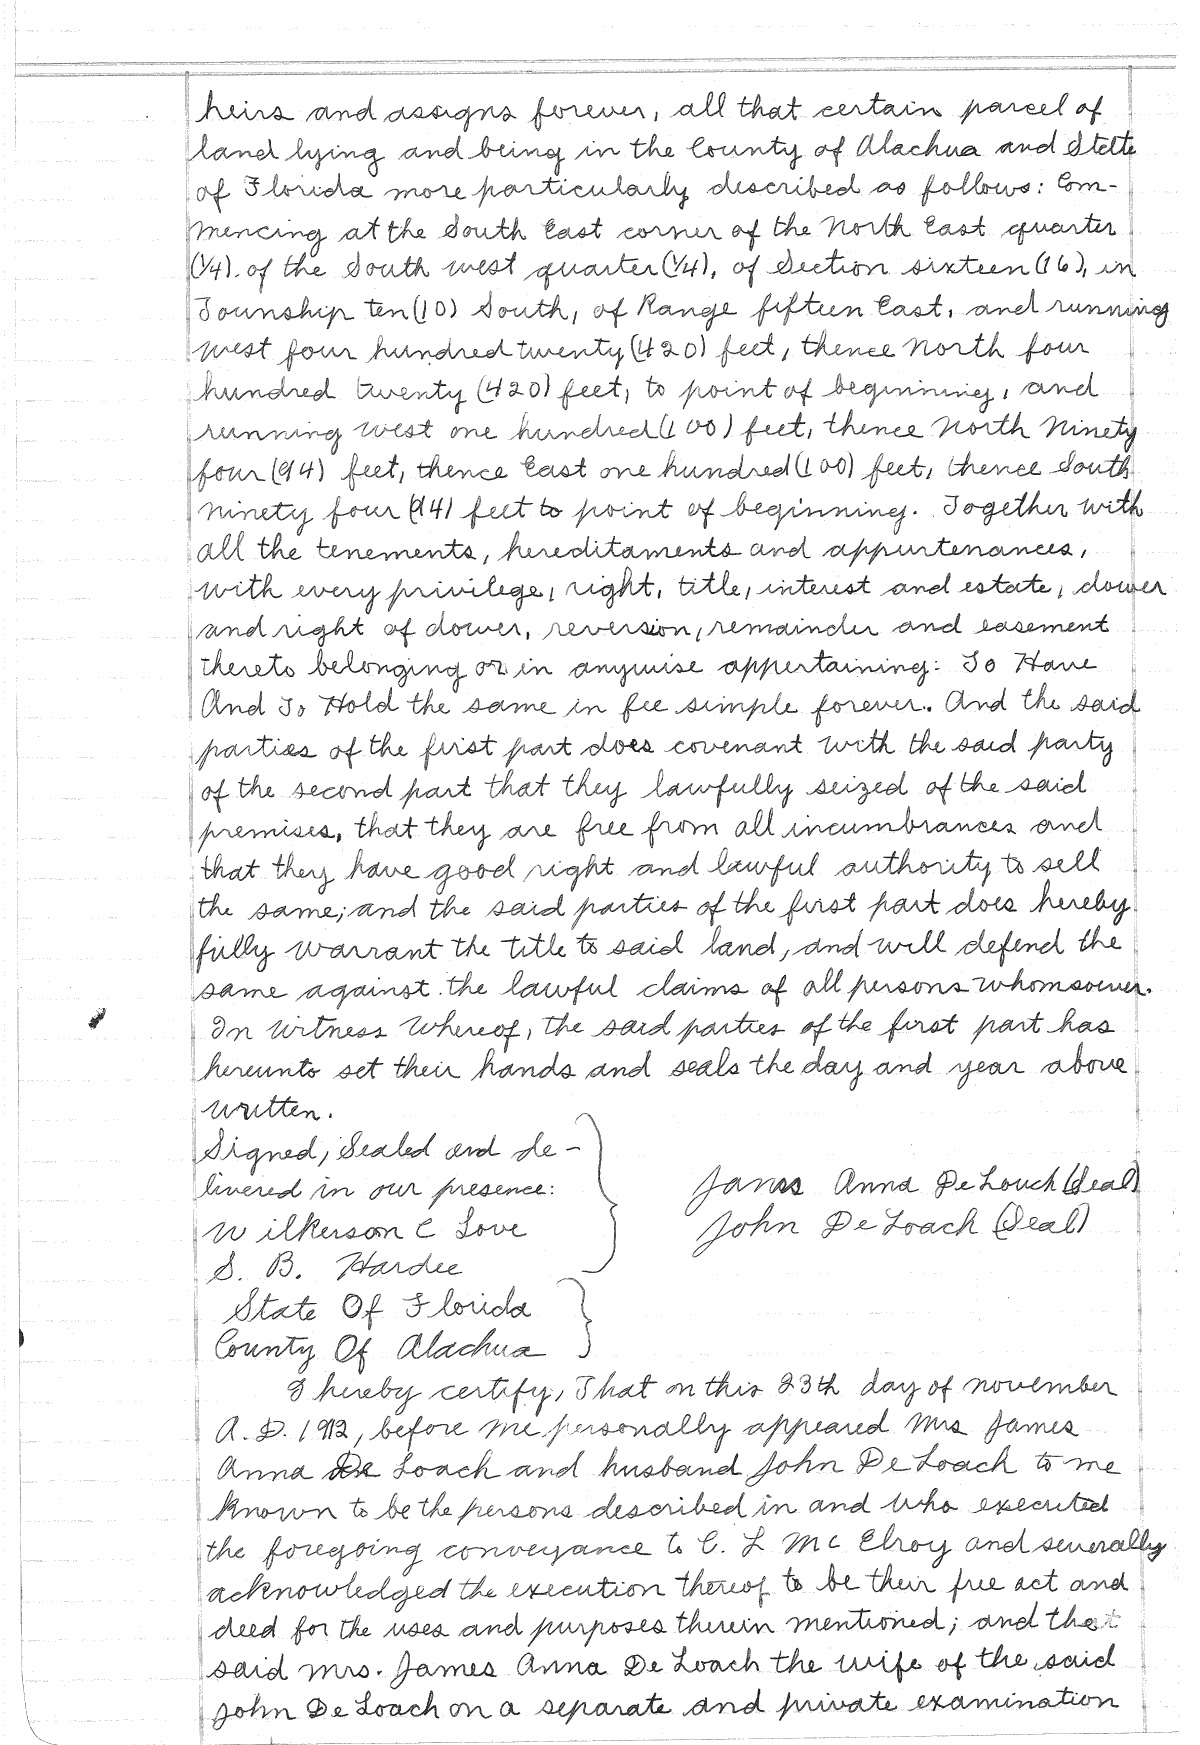 heirs and assigns forever, all that certain parcel of
land lying and being in the County of Alachua and State
of Florida more particularly described as follows: Com-
mencing at the South East corner of the North East quarter
(1/4). of the South west quarter (1/4), of Section sixteen (16), in
Township ten (10) South, of Range fifteen East, and running
west four hundred twenty (420) feet, thence North four
hundred twenty (420) feet, to point of beginning, and
running west one hundred (100) feet, thence North Ninety
four (94) feet, thence East one hundred (100) feet, thence South
Ninety four (94) feet to point of beginning. Together with
all the tenements, hereditaments and appurtenances,
with every privilege, right, title, interest and estate, dower
and right of dower, reversion, remainder and easement
thereto belonging or in anywise appertaining: To Have
And To Hold the same in fee simple forever. And the said
parties of the first part does covenant with the said party
of the second part that they lawfully seized of the said
premises, that they are free from all incumbrances and
that they have good right and lawful authority to sell
the same; and the said parties of the first part does hereby
fully warrant the title to said land, and will defend the
same against the lawful claims of all persons whomsoever.
In Witness Whereof, the said parties of the first part has
hereunto set their hands and seals the day and year above
written.
Signed, Sealed and de-
livered in our presence:
Wilkerson C Love
S. B. Hardee
James Anna DeLouch (Seal)
John DeLoach (Seal)
State Of Florida
County Of Alachua
I hereby certify, That on this 23th day of november
A. D. 1912, before me personally appeared Mrs James
Anna De Loach and husband John De Loach to me
known to be the persons described in and who executed
the foregoing conveyance to C. L McElroy and severally
acknowledged the execution thereof to be their free act and
deed for the uses and purposes therein mentioned; and that
said mrs. James Anna De Loach the wife of the said
John De Loach on a separate and private examination